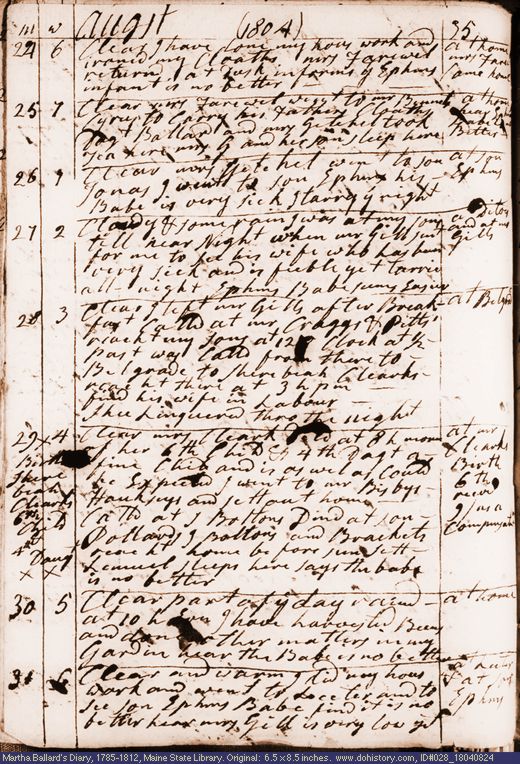 m w August (1804) 35
24 6 Clear I have done my hous work and at home
ironed my Cloaths. mrs Farewel mrs Farwel
return at Dusk informs yt Ephms came home
infant is no better
25 7 Clear mrs Farewel went to mr at home
Cyrus to Carry his Father
Dagt Ballard and mrs Getchel took
Tea here mrs G and her son sleep here Better
26 1 Clear mrs Getchel went to son at son
Jonas I went to son Ephms his Ephms
Babe is very sick I tarry'd night
27 2 Cloudy & some rain I was at my sons at Ditos
till near Night when mr Gill sent and at mr
for me to see his wife who has been Gills
very sick and is feeble yet I tarried
all night Ephms Babe seems Easier
28 3 Clear I left mr Gills after Break- at Belgrade
fast Calld at mr Craggs & Pitts
reacht my sons at 12 O Clock at ½
past was Calld from there to
Belgrade to Sherebiah Clearks
reacht there at 3 h pm
find his wife in Labour
shee Lingered thro the night
29 x 4 Clear mrs Cleark Deld at 8 h morn at mr
Birth of her 6th Child & 4th Dagt a Clearks
Shere fine Chld and is as well as Could Birth
biah be Expected I went to mr Bisbys 6th
Clarks Hanksuys and sett out home
6th Calld at J Boltons Dind at son
Child Pollards, J Boltons and Brachets
4th Daugt reacht home before sun sett
x x Lemuel sleeps here says the babe
is no better
30 5 Clear part of ye day raind at home
at 10 h Evn I have harvested Beens
and done other matters in my
Garden hear the Babe is no better
31 6 Clear and warm I did my hous
work and went to see Lev and to & at son
see son Ephms Babe find it is no Ephms
better hear mrs Gill is very low yet
Martha Ballard's Diary, 1785-1812, Maine State Library. Original: 6.5 x 8.5 inches. www.dohistory.com, ID#028_18040824